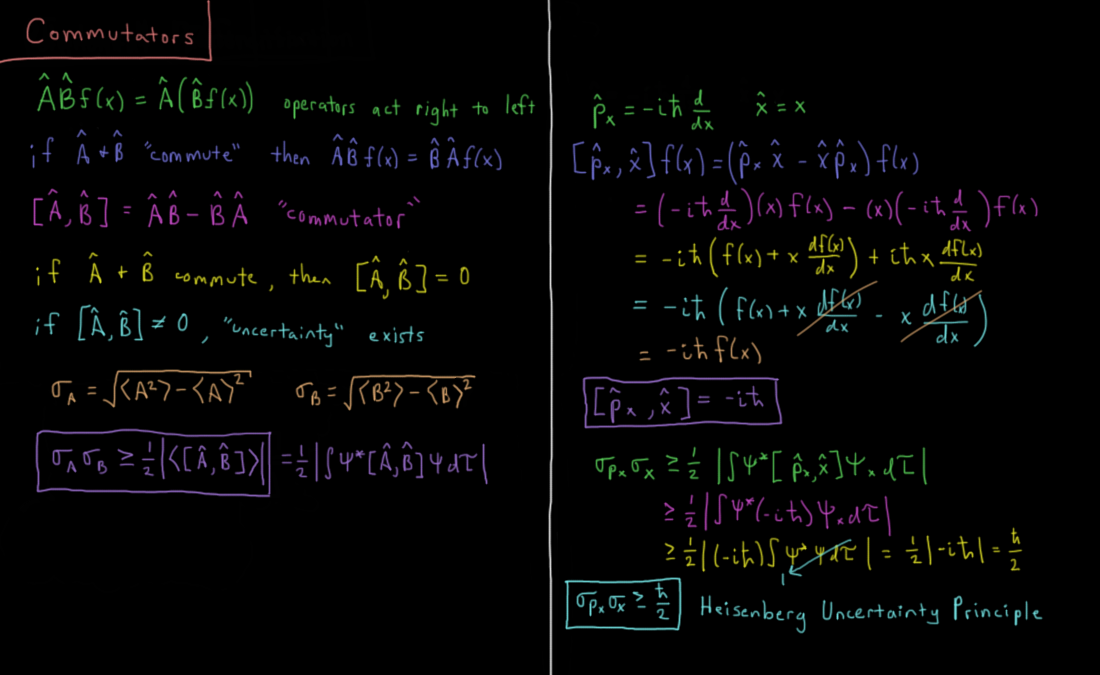 Commutators
ÂB̂f(x) = Â(B̂f(x)) operators act right to left
if Â + B̂ "commute" then ÂB̂f(x) = B̂Âf(x)
[Â, B̂] = ÂB̂ - B̂Â "commutator"
if Â + B̂ commute, then [Â, B̂] = 0
if [Â, B̂] ≠ 0, "uncertainty" exists
σ_A = √(⟨A²⟩ - ⟨A⟩²) σ_B = √(⟨B²⟩ - ⟨B⟩²)
σ_A σ_B ≥ ½|⟨[Â, B̂]⟩| = ½|∫ψ*[Â, B̂]ψdτ|
p̂ₓ = -iħ d/dx x̂ = x
[p̂ₓ, x̂]f(x) = (p̂ₓ x̂ - x̂ p̂ₓ)f(x)
= (-iħ d/dx)(x)f(x) - (x)(-iħ d/dx)f(x)
= -iħ(f(x) + x df(x)/dx) + iħx df(x)/dx
= -iħ(f(x) + x df(x)/dx - x df(x)/dx)
= -iħf(x)
[p̂ₓ, x̂] = -iħ
σ_pₓ σₓ ≥ ½|∫ψ*[p̂ₓ, x̂]ψₓdτ|
≥ ½|∫ψ*(-iħ)ψₓdτ|
≥ ½|(-iħ)∫ψ*ψdτ| = ½|-iħ| = ħ/2
1
σ_pₓ σₓ ≥ ħ/2 Heisenberg Uncertainty Principle